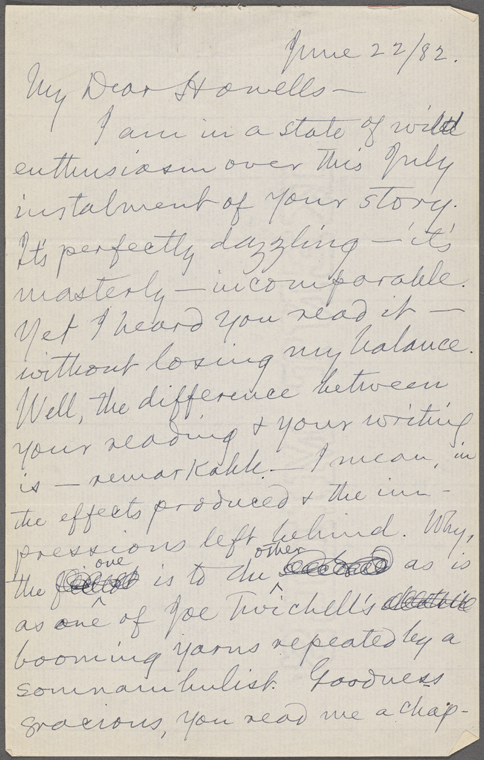 June 22/82.
My Dear Howells—
I am in a state of wild
enthusiasm over this July
instalment of your story.
It's perfectly dazzling—it's
masterly—incomparable.
Yet I heard you read it—
without losing my balance.
Well, the difference between
your reading & your writing
is—remarkable. I mean, in
the effects produced & the im-
pressions left behind. Why,
the one is to the other as is
as one of Joe Twichell's
booming yarns repeated by a
somnambulist. Goodness
gracious, you read me a chap-